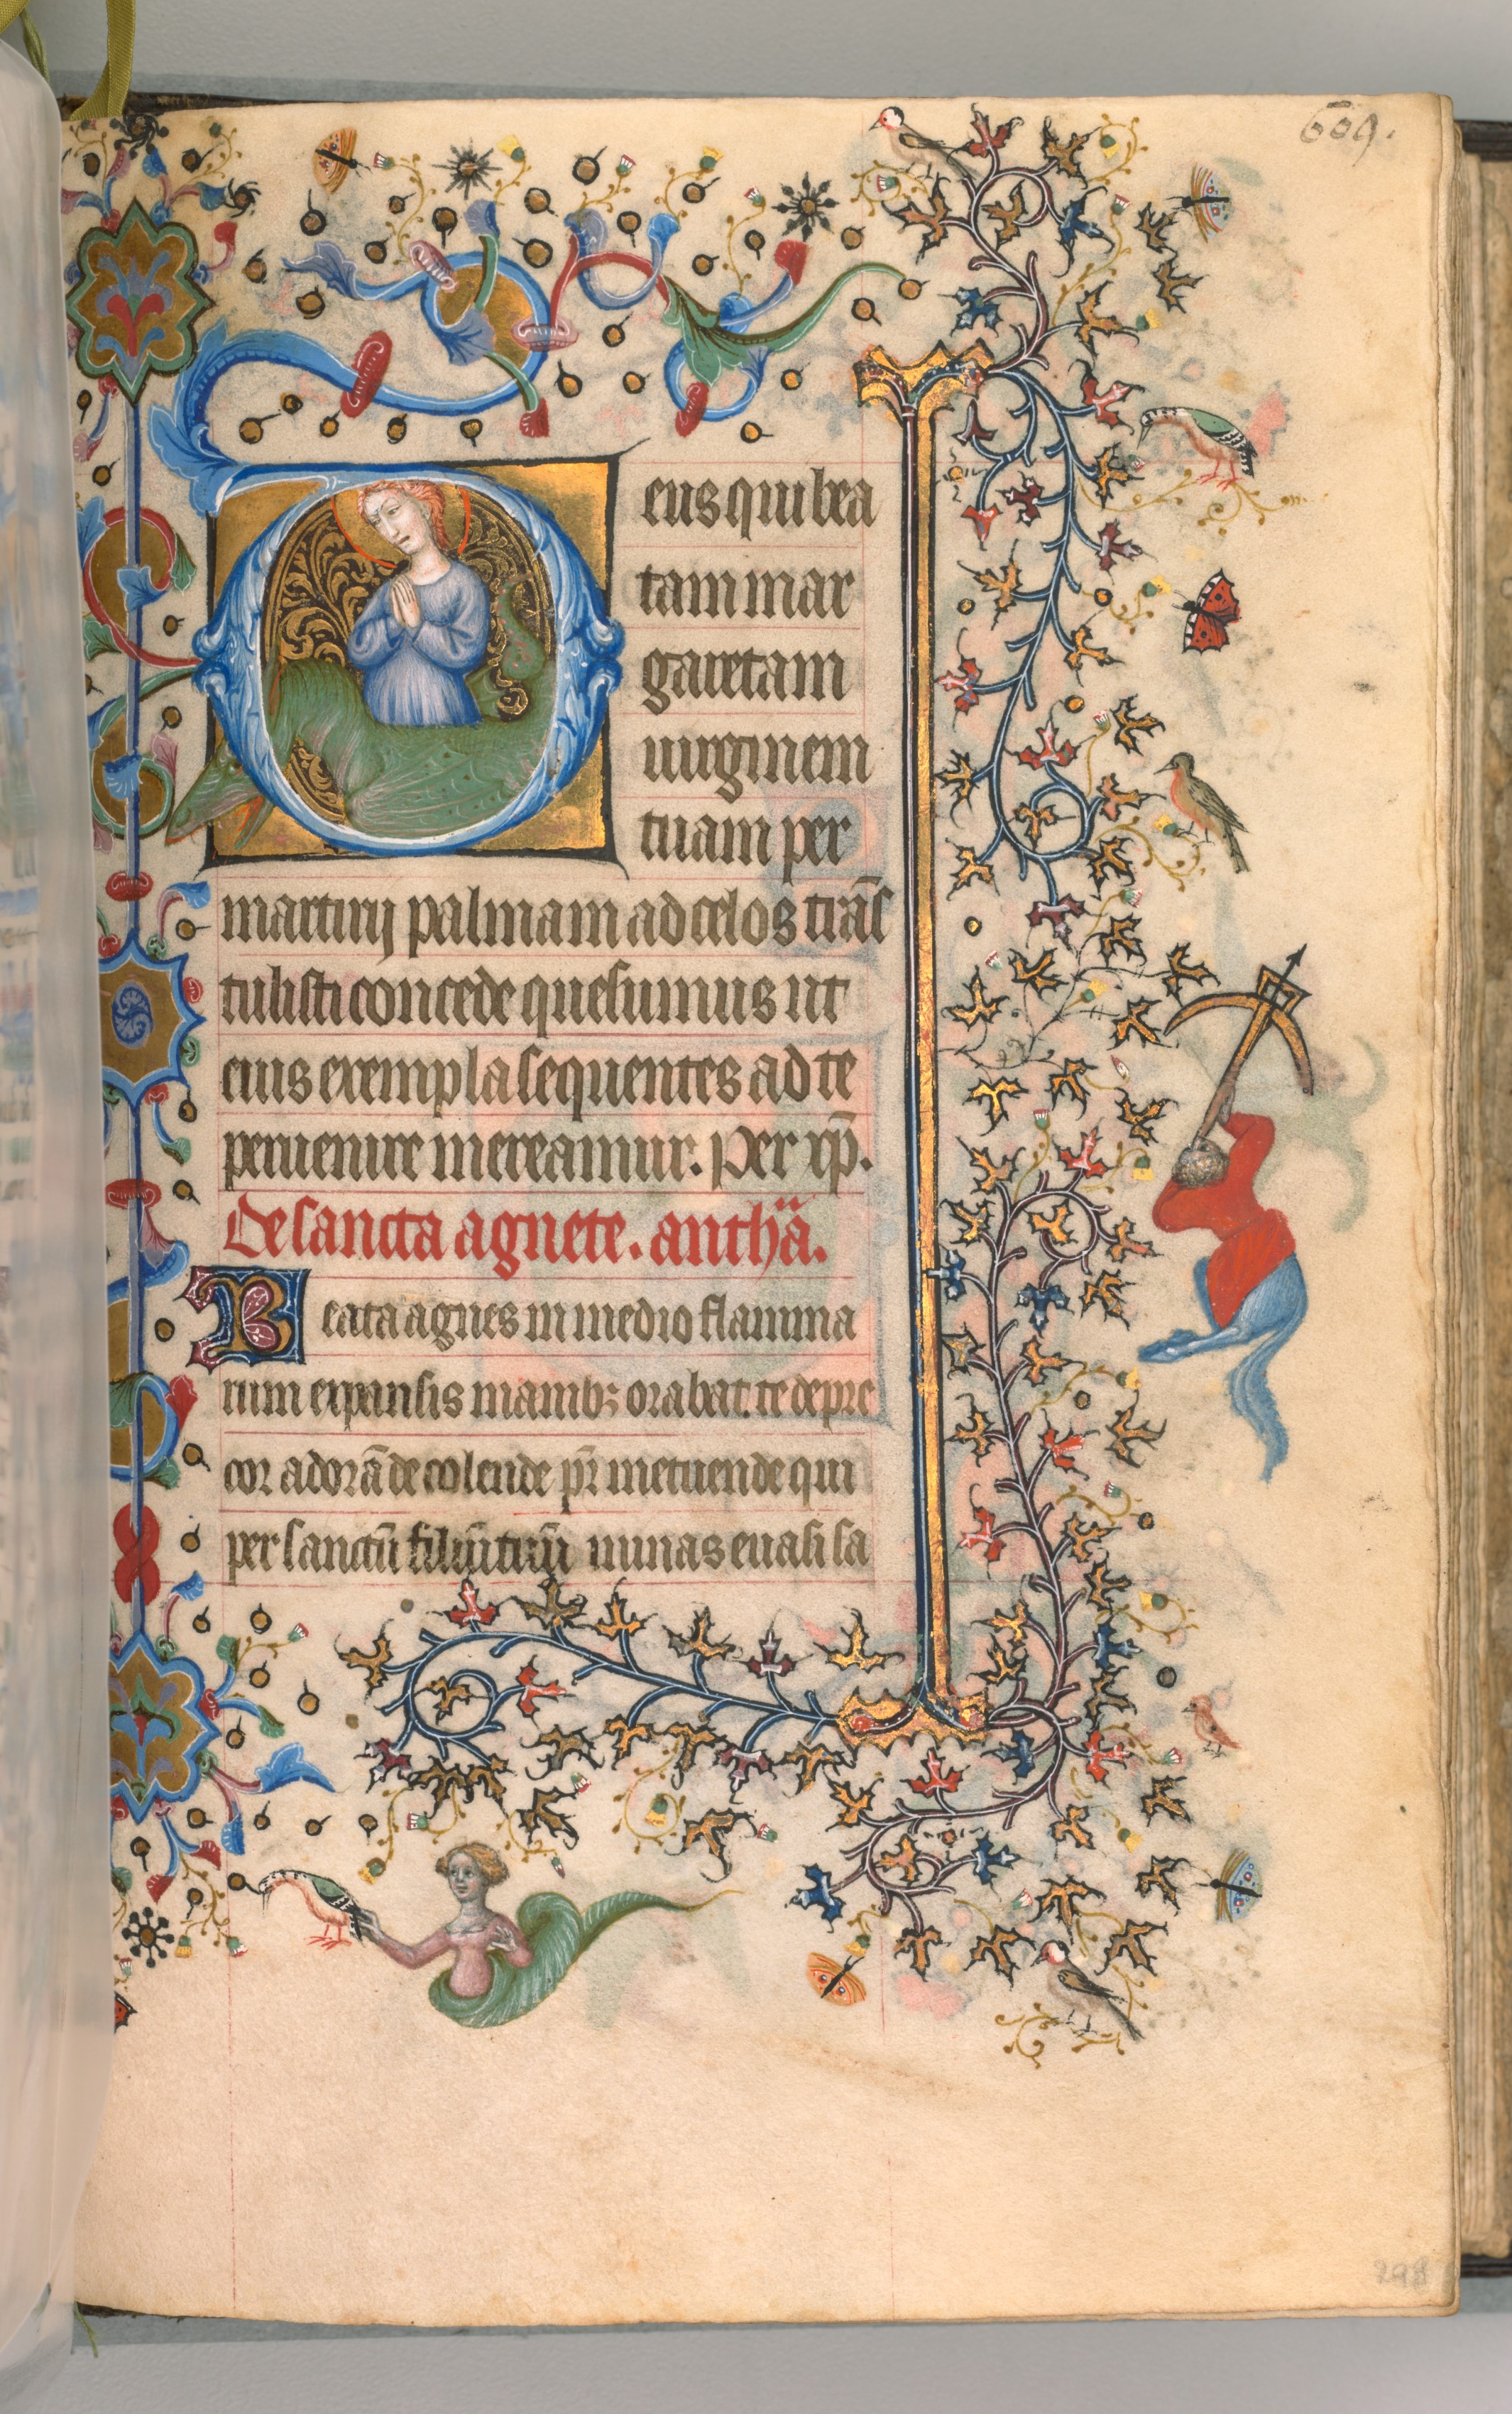 609.
Deus qui bea
tam mar
garetam
uirginem
tuam per
martirij palmam ad celos trãs
tulisti concede quesumus ut
eius exempla sequentes ad te
peruenire mereamur. Per xp̃.
De sancta agnete. anth̃a.
Beata agnes in medio flamma
rum expansis manibꝫ orabat. te depre
cor adorãde colende pr̃ metuende qui
per sanctũ filiũ tuũ minas euasi sa
298